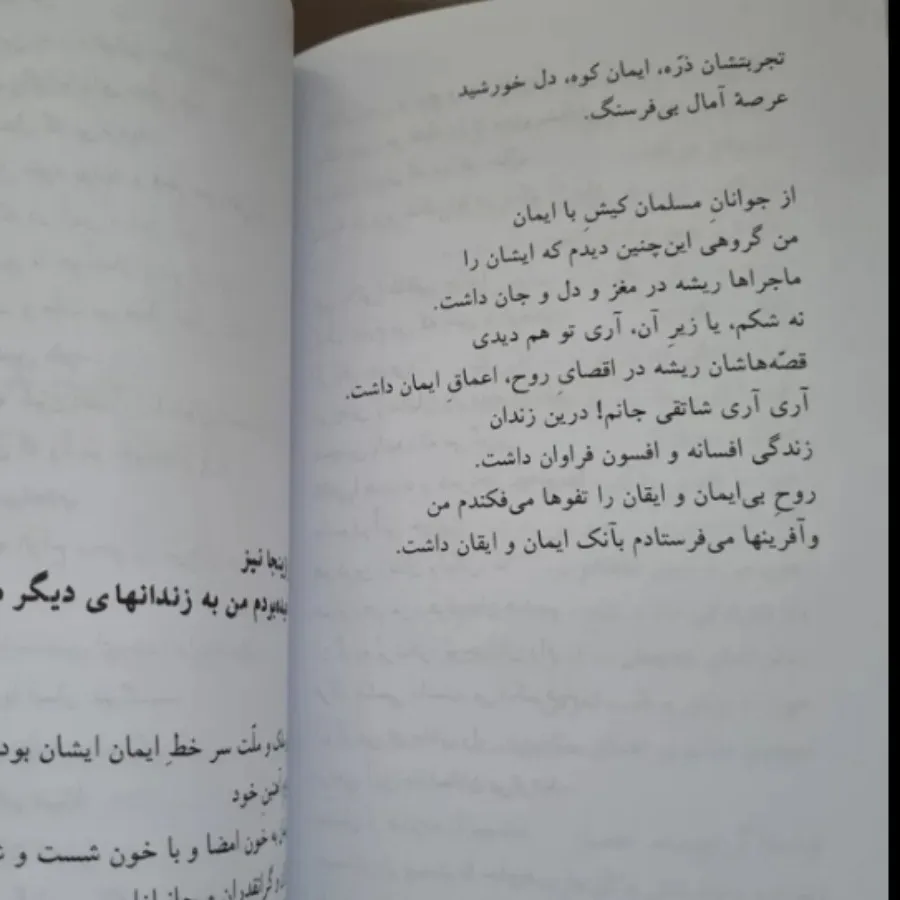 تجربتشان ذرّه، ایمان کوه، دل خورشید
عرصهٔ آمال بی‌فرسنگ.
از جوانانِ مسلمان کیشِ با ایمان
من گروهی این‌چنین دیدم که ایشان را
ماجراها ریشه در مغز و دل و جان داشت.
نه شکم، یا زیرِ آن، آری تو هم دیدی
قصّه‌هاشان ریشه در اقصایِ روح، اعماقِ ایمان داشت.
آری آری شاتقی جانم! درین زندان
زندگی افسانه و افسون فراوان داشت.
روحِ بی‌ایمان و ایقان را تفوها می‌فکندم من
وآفرینها می‌فرستادم بآنک ایمان و ایقان داشت.
اینجا نیز
من به زندانهای دیگر
و ملّت سر خطِ ایمان ایشان بود
خود
خون امضا و با خون شست و